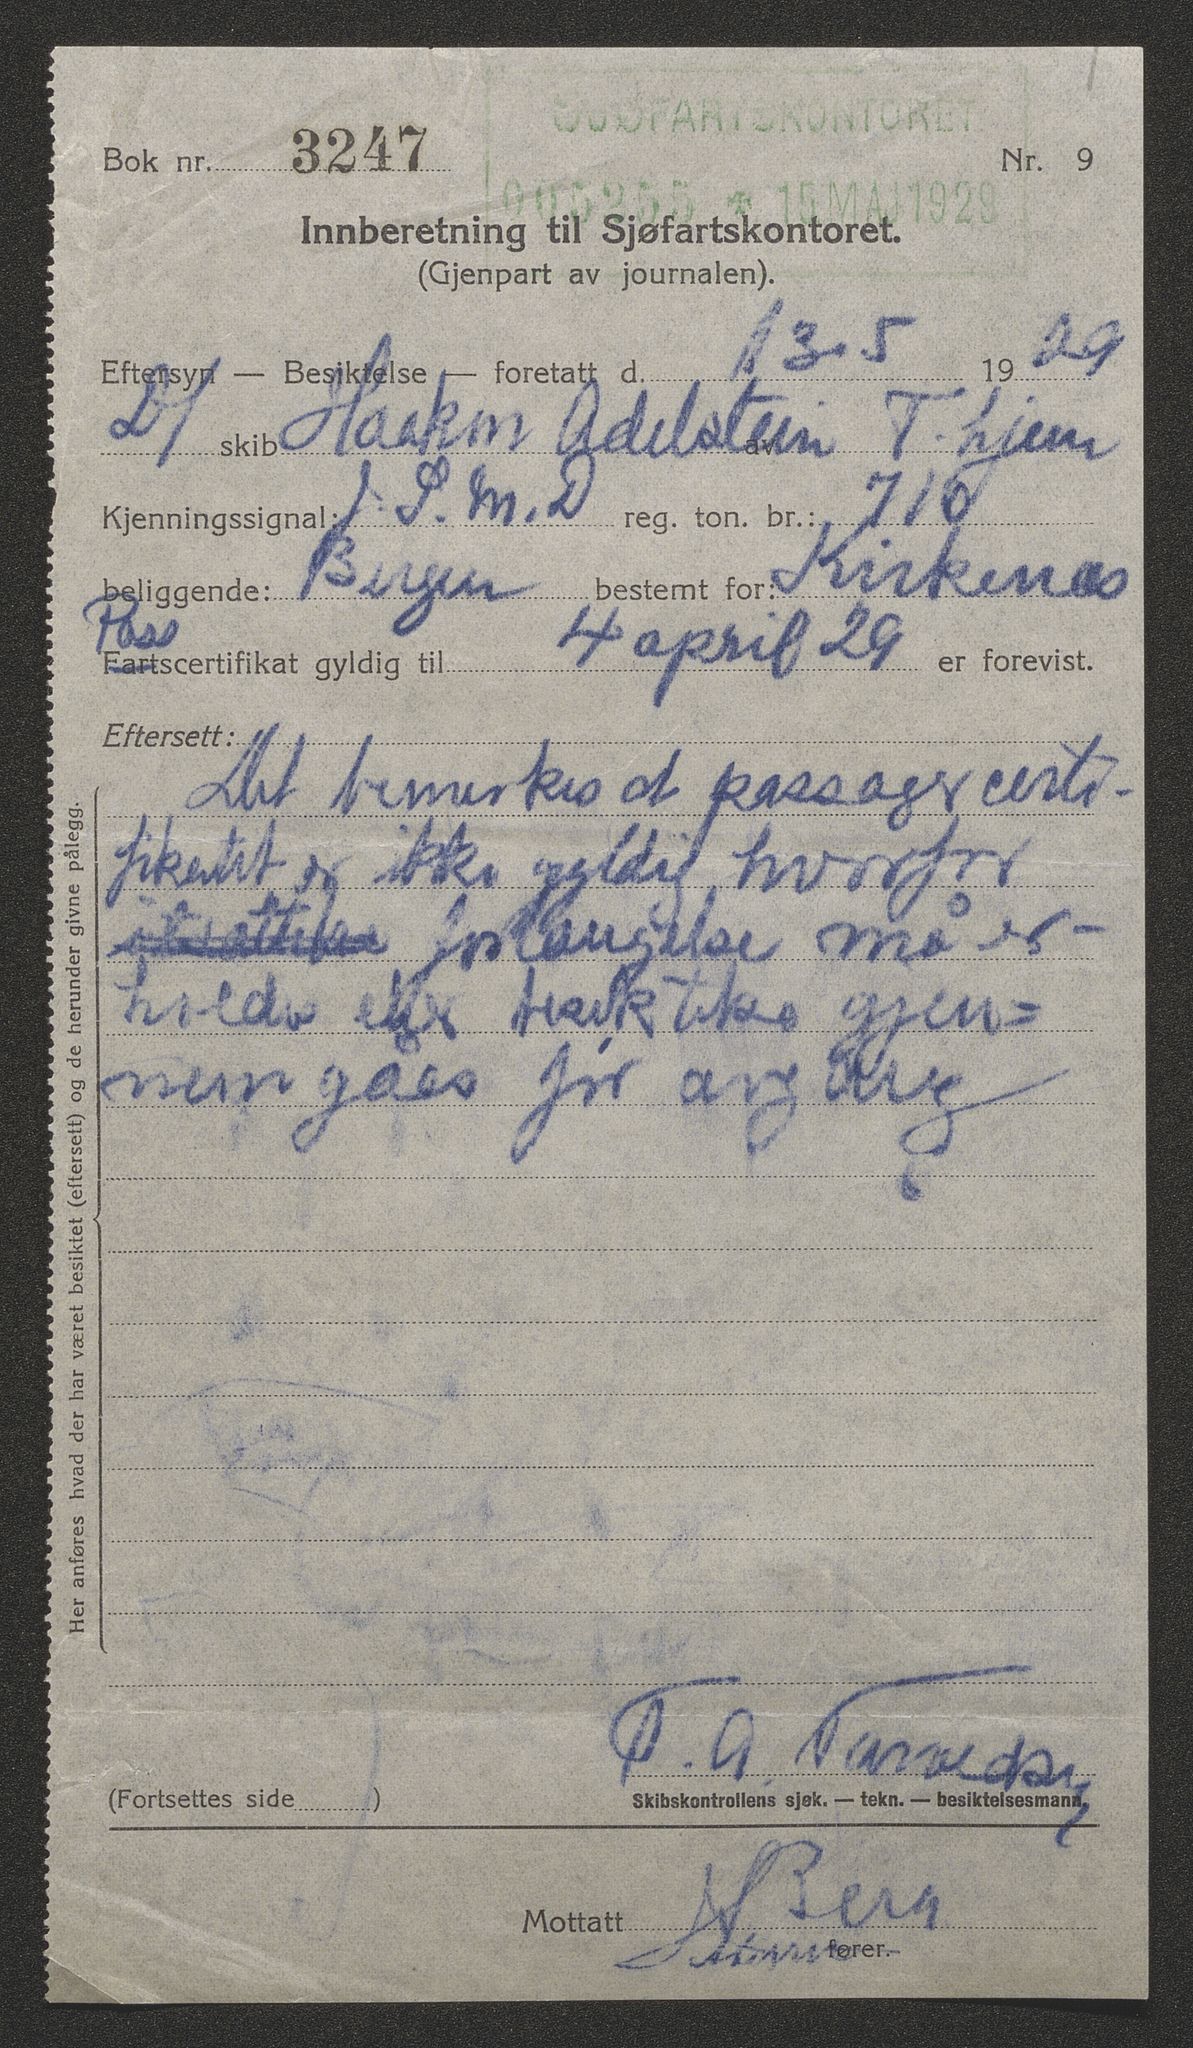 SJØFARTSKONTORET
Bok nr. 3247 Nr. 9
005255 * 15 MAJ 1929
Innberetning til Sjøfartskontoret.
(Gjenpart av journalen).
Eftersyn — Besiktelse — foretatt d. 13.5 19 29
D/ skib Haakon Adelstein av T. hjem
Kjenningssignal: M.D reg. ton. br.: 710
beliggende: Bergen bestemt for: Kirkenæs
Pass
Fartscertifikat gyldig til 4 april 29 er forevist.
Eftersett:
Det bemerkes at passager certi-
fikatet er ikke gyldig, hvorfor
forlængelse må er-
holdes eller besiktelse gjen=
nemgåes før avgang
Her anføres hvad der har været besiktet (eftersett) og de herunder givne pålegg.
(Fortsettes side )
Skibskontrollens sjøk. — tekn. — besiktelsesmann.
Mottatt Berg
fører.